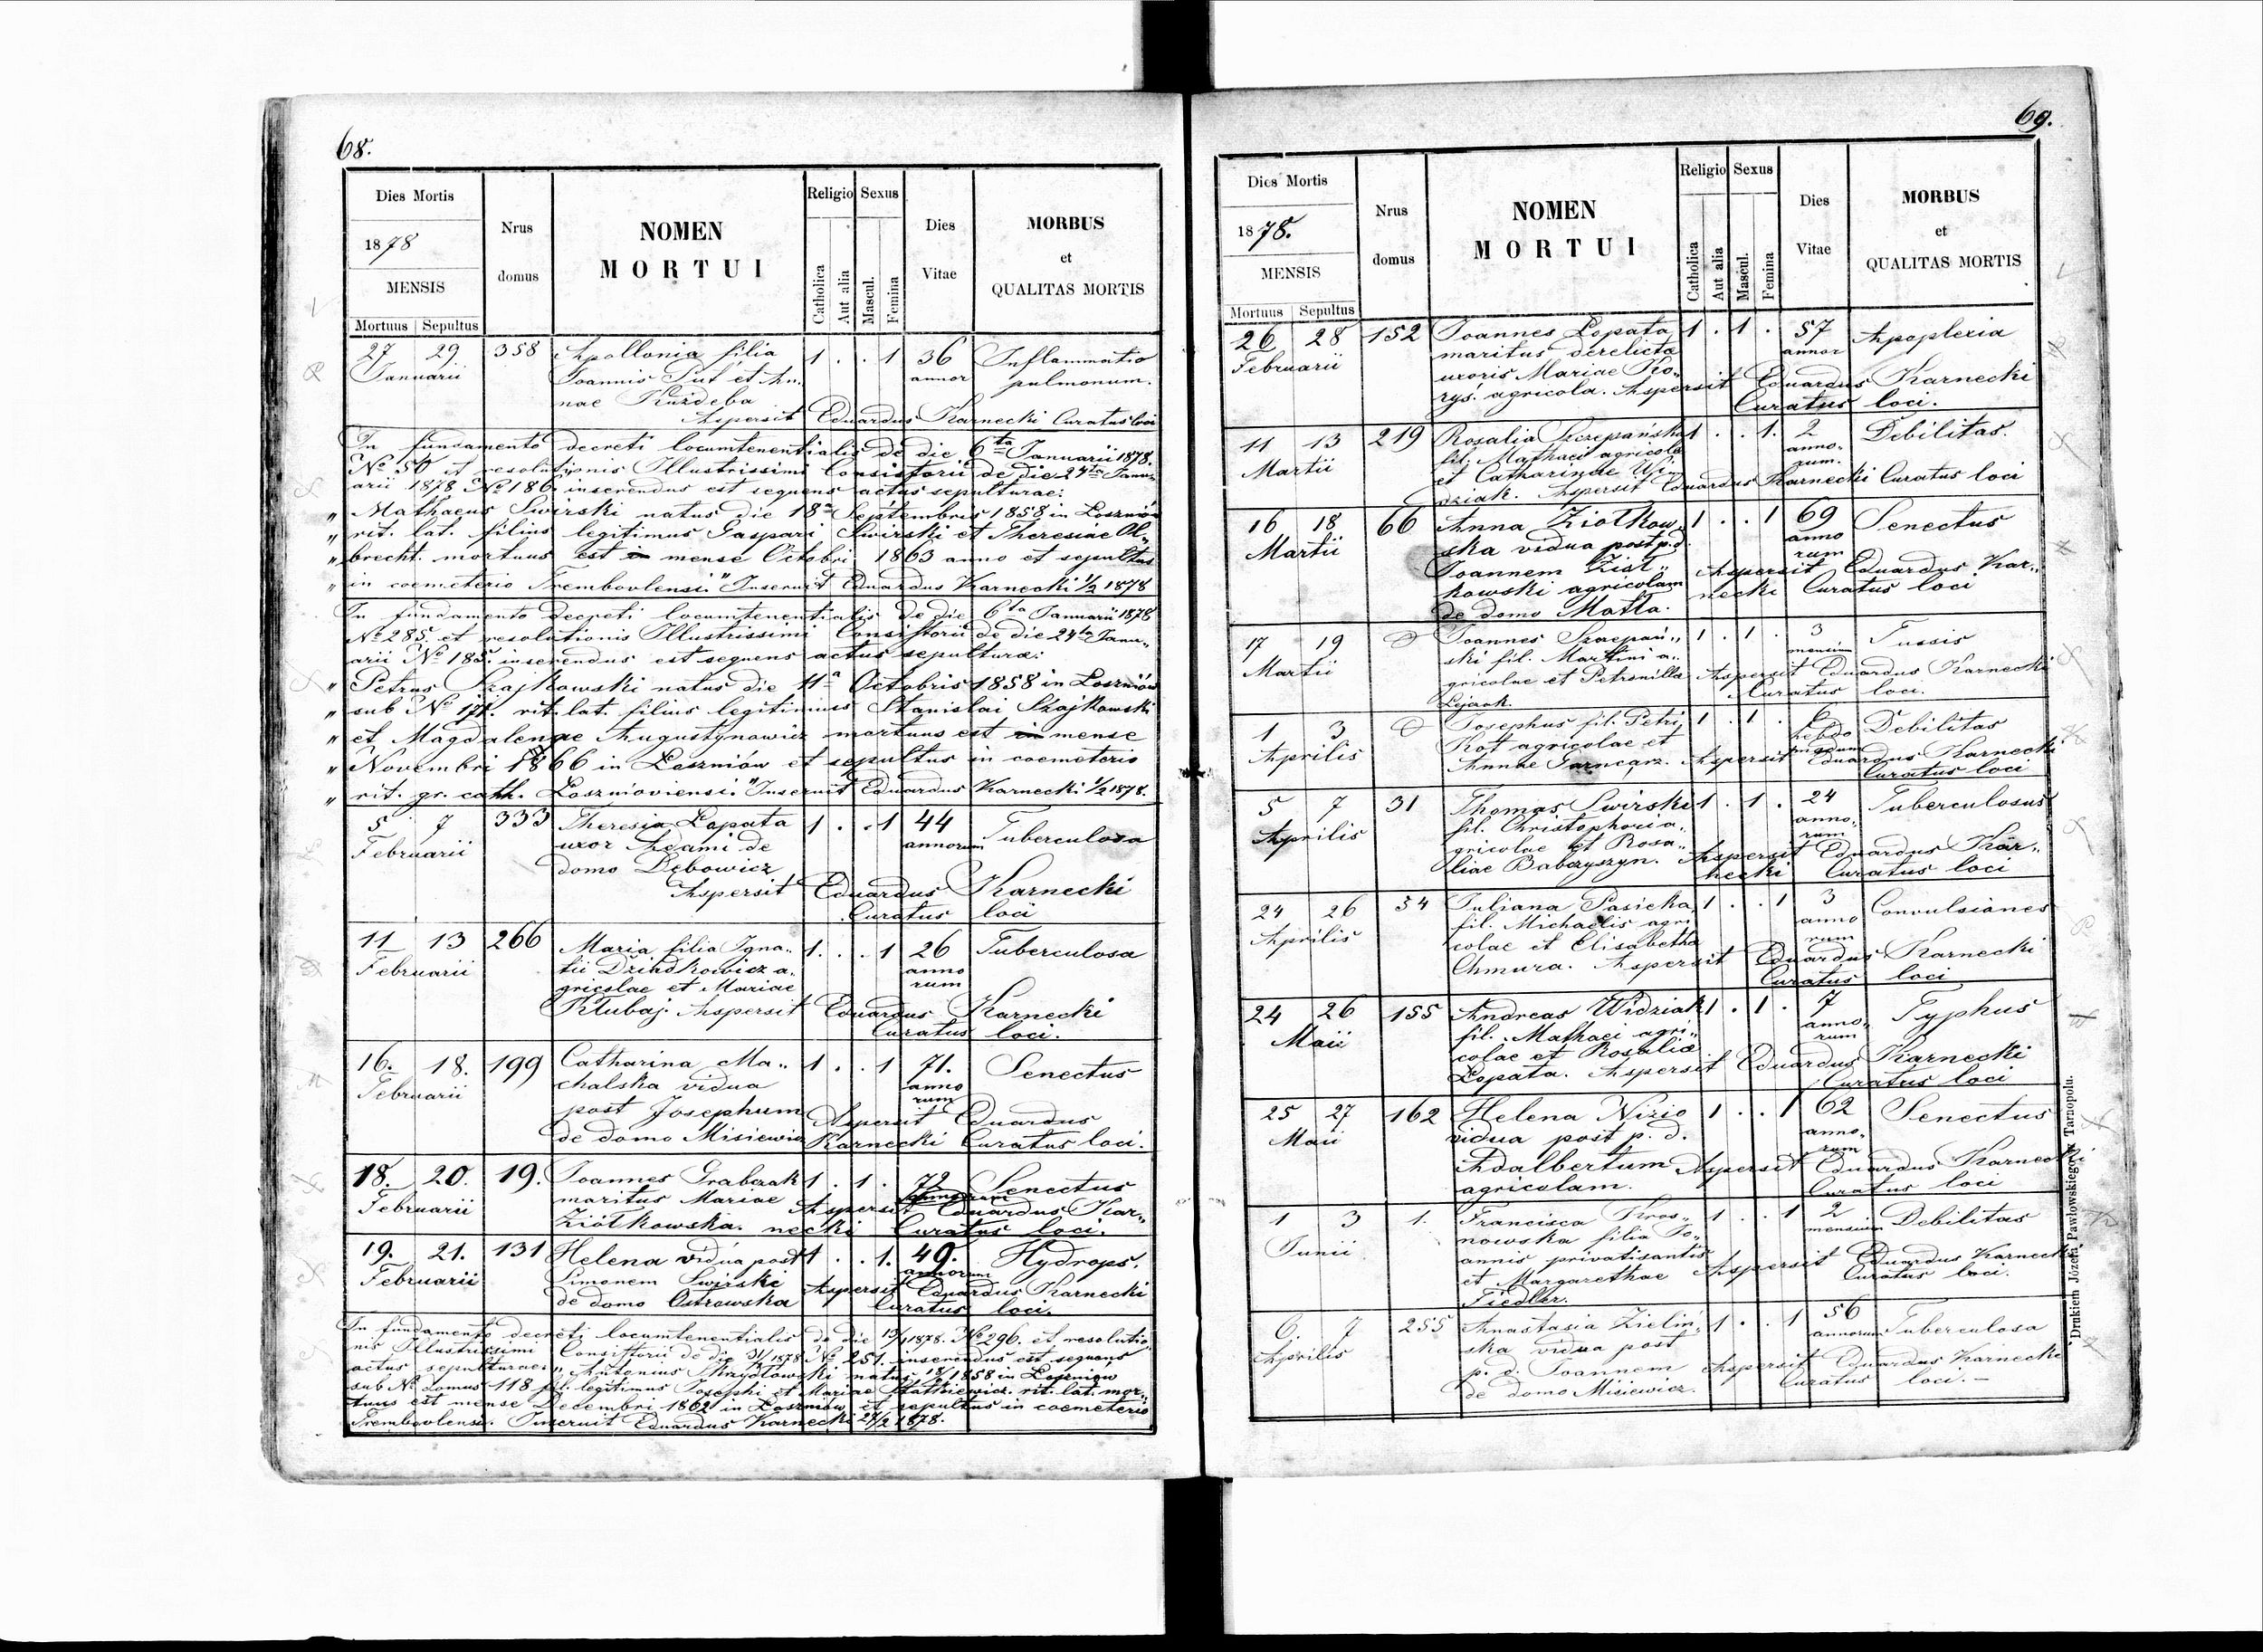 68.
Dies Mortis
1878
MENSIS
Mortuus Sepultus
Nrus
domus
NOMEN
MORTUI
Religio
Catholica
Aut alia
Sexus
Mascul.
Femina
Dies
Vitae
MORBUS
et
QUALITAS MORTIS
27 29 358 Apollonia filia 1 . . 1 36 Inflammatio
Januarii Joannis Put et An- annor pulmonum.
nae Kuźdeba
Aspersit Eduardus Karnecki Curatus loci
In fundamento decreti locumtenentialis de die 6ta Januarii 1878.
No 50 et resolutionis Illustrissimi Consistorii de die 24ta Janu-
arii 1878 No 186 inserendus est sequens actus sepulturae:
„ Mathaeus Swirski natus die 18a Septembris 1858 in Łoszniów
„ rit. lat. filius legitimus Gaspari Swirski et Theresiae Ol„
„ brecht. mortuus est in mense Octobri 1863 anno et sepultus
„ in coemeterio Trembovlensi." Inseruit Eduardus Karnecki 1/2 1878
In fundamento decreti locumtenentialis de die 6ta Januarii 1878
No 285. et resolutionis Illustrissimi Consistorii de die 24ta Janu„
arii No 185. inserendus est sequens actus sepulturæ:
„ Petrus Szajkowski natus die 11a Octobris 1858 in Łoszniów
„ sub No 171. rit. lat. filius legitimus Stanislai Szajkowski
„ et Magdalenae Augustynowicz mortuus est in mense
„ Novembri 1866 in Łoszniów et sepultus in coemeterio
„ rit. gr. cath. Łosznioviensi." Inseruit Eduardus Karnecki 1/2 1878.
5 7 333 Theresia Łopata 1 . . 1 44 Tuberculosa
Februarii uxor Adami de annorum
domo Dębowicz
Aspersit Eduardus Karnecki
Curatus loci
11 13 266 Maria filia Igna„ 1. . . 1 26 Tuberculosa
Februarii tii Dźindkowicz a„ anno
gricolae et Mariae rum
Kłubaj. Aspersit Eduardus Karnecki
Curatus loci.
16. 18. 199 Catharina Ma„ 1 . . 1 71. Senectus
Februarii chalska vidua anno
post Josephum rum Aspersit Eduardus
de domo Misiewicz Karnecki Curatus loci.
18. 20. 19. Joannes Grabczak 1 . 1 . 72 Senectus
Februarii maritus Mariae annorum Aspersit Eduardus Kar„
Ziółkowska. necki Curatus loci.
19. 21. 131 Helena vidua post 1 . . 1. 49. Hydrops.
Februarii Simonem Swirski annorum Aspersit Eduardus Karnecki
de domo Ostrowska Curatus loci.
In fundamento decreti locumtenentialis de die 13/1 1878. No 296. et resolutio„
nis Illustrissimi Consistorii de die 31/1 1878 No 251. inserendus est sequens
actus sepulturae: „ Antonius Skrzydłowski natus 18/1 1858 in Łoszniów
sub No domus 118 fil. legitimus Josephi et Mariae rit. lat. mor„
tuus est mense Decembri 1862 in Łoszniów et sepultus in coemeterio
Trembovlensi. Inseruit Eduardus Karnecki 27/2 1878.
69.
Dies Mortis
1878.
MENSIS
Mortuus Sepultus
Nrus
domus
NOMEN
MORTUI
Religio
Catholica
Aut alia
Sexus
Mascul.
Femina
Dies
Vitae
MORBUS
et
QUALITAS MORTIS
26 28 152 Joannes Łopata 1 . 1 . 57 Apoplexia
Februarii maritus derelicta annor
uxoris Mariae Ko„
ryś. agricola. Aspersit Eduardus Karnecki
Curatus loci.
11 13 219 Rosalia Szczepańska 1 . . 1. 2 Debilitas.
Martii fil. Mathaei agricolae anno-
et Catharinae Wi- rum.
dziak. Aspersit Eduardus Karnecki Curatus loci
16 18 66 Anna Ziołkow„ 1 . . 1 69 Senectus
Martii ska vidua post p. d. anno
Joannem Ziół„ rum Aspersit Eduardus Kar„
kowski agricolam necki Curatus loci
de domo Motta.
17 19 Joannes Szczepań„ 1 . 1 . 3 Tussis
Martii ski fil. Martini a„ mensium
gricolae et Petronilla Aspersit Eduardus Karnecki
Curatus loci.
1 3 Josephus fil. Petri 1 . 1 . 6 Debilitas
Aprilis Kot agricolae et hebdo
Annae Garncarz. madum Aspersit Eduardus Karnecki
Curatus loci
5 7 31 Thomas Swirski 1 . 1 . 24 Tuberculosus
Aprilis fil. Christophori a„ anno„
gricolae et Rosa„ rum
liae Babczyszyn. Aspersit Eduardus Kar„
necki Curatus loci
24 26 34 Juliana Pasieka 1 . . 1 3 Convulsiones
Aprilis fil. Michaelis agri anno
colae et Elisabetha rum
Chmura. Aspersit Eduardus Karnecki
Curatus loci
24 26 155 Andreas Widziak 1 . 1 . 7 Typhus
Maii fil. Mathaei agri„ anno„
colae et Rosalia rum
Łopata. Aspersit Eduardus Karnecki
Curatus loci
25 27 162 Helena Nizio 1 . . 1 62 Senectus
Maii vidua post p. d. anno„
Adalbertum rum Aspersit Eduardus Karnecki
agricolam. Curatus loci
1 3 1. Francisca Kros„ 1 . . 1 2 Debilitas
Junii nowska filia Jo„ mensium
annis privatisantis
et Margarethae Aspersit Eduardus Karnecki
Fiedler. Curatus loci.
6. 7 255 Anastasia Zieliń„ 1 . . 1 56 Tuberculosa
Aprilis ska vidua post annorum
p. d. Joannem Aspersit Eduardus Karnecki
de domo Misiewicz. Curatus loci.—
Drukiem Józefa Pawłowskiego w Tarnopolu.